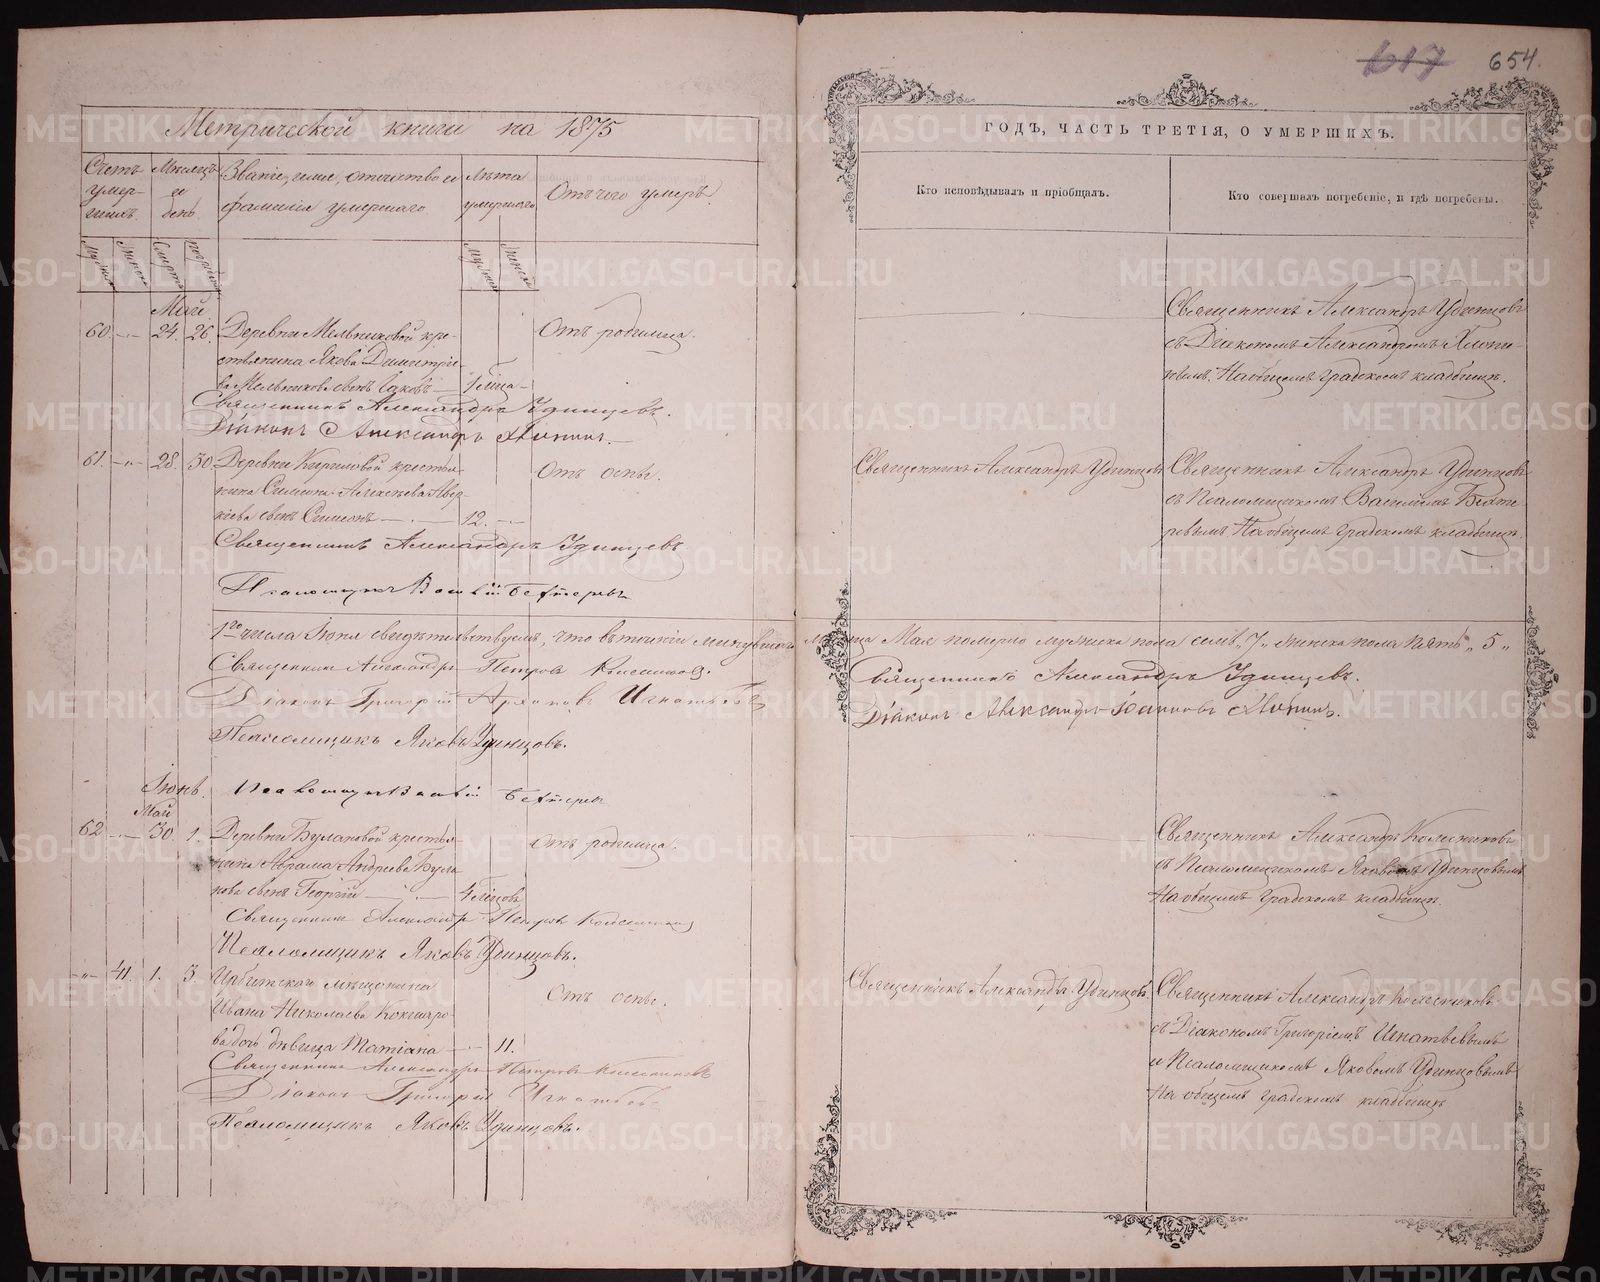 617 654.
Метрической книги на 1875
ГОДЪ, ЧАСТЬ ТРЕТІЯ, О УМЕРШИХЪ.
Счетъ умер-шихъ.
Мѣсяцъ и день.
Званіе, имя, отчество и фамилія умершаго
Лѣта умершаго
Отъ чего умеръ.
Кто исповѣдывалъ и пріобщалъ.
Кто совершалъ погребеніе, и гдѣ погребены.
Май
60 24. 26. Деревни Мельниковой кре-
стьянина Якова Димитрі-
ева Мельникова сынъ
Отъ родимца.
Священникъ Александръ Удинцевъ.
Діаконъ Александръ
Священникъ Александръ Удинцовъ
съ Діакономъ Александромъ
На общемъ градскомъ кладбищѣ.
61. 28. 30. Деревни Кириловой крестья-
нина Симеона Алексѣева Авер-
кіева сынъ Симеонъ 12.
Отъ оспы.
Священникъ Александръ Удинцевъ
Псаломщикъ
Священникъ Александръ Удинцовъ
Священникъ Александръ Удинцовъ
съ Псаломщикомъ Василіемъ Бехте-
ревымъ. На общемъ градскомъ кладбищѣ.
1го числа Іюня свидѣтельствуемъ, что въ теченіи минувшаго мѣсяца Мая померло мужеска пола семь „7„ женска пола пять „5„
Священникъ Александръ Петровъ Колесниковъ.
Діаконъ Григорій Игнатьевъ
Псаломщикъ Яковъ Удинцовъ.
Священникъ Александръ Удинцевъ.
Діаконъ Александръ
Іюнь.
Май
62 30. 1. Деревни Булановой крестья-
нина Абрама Андреева Була-
нова сынъ Георгій
Отъ родимца.
Священникъ Александръ Петровъ Колесниковъ
Псаломщикъ Яковъ Удинцовъ.
Священникъ Александръ Колесниковъ
съ Псаломщикомъ Яковомъ Удинцовымъ
На общемъ градскомъ кладбищѣ.
41. 1. 3. Ирбитскаго мѣщанина
Ивана Николаева Кокшаро-
ва дочь дѣвица Татіана 11.
Отъ оспы.
Священникъ Александръ Петровъ Колесниковъ
Діаконъ Григорій Игнатьевъ
Псаломщикъ Яковъ Удинцовъ.
Священникъ Александръ Удинцовъ
Священникъ Александръ Колесниковъ
съ Діакономъ Григоріемъ Игнатьевымъ
и Псаломщикомъ Яковомъ Удинцовымъ
На общемъ градскомъ кладбищѣ
METRIKI.GASO-URAL.RU